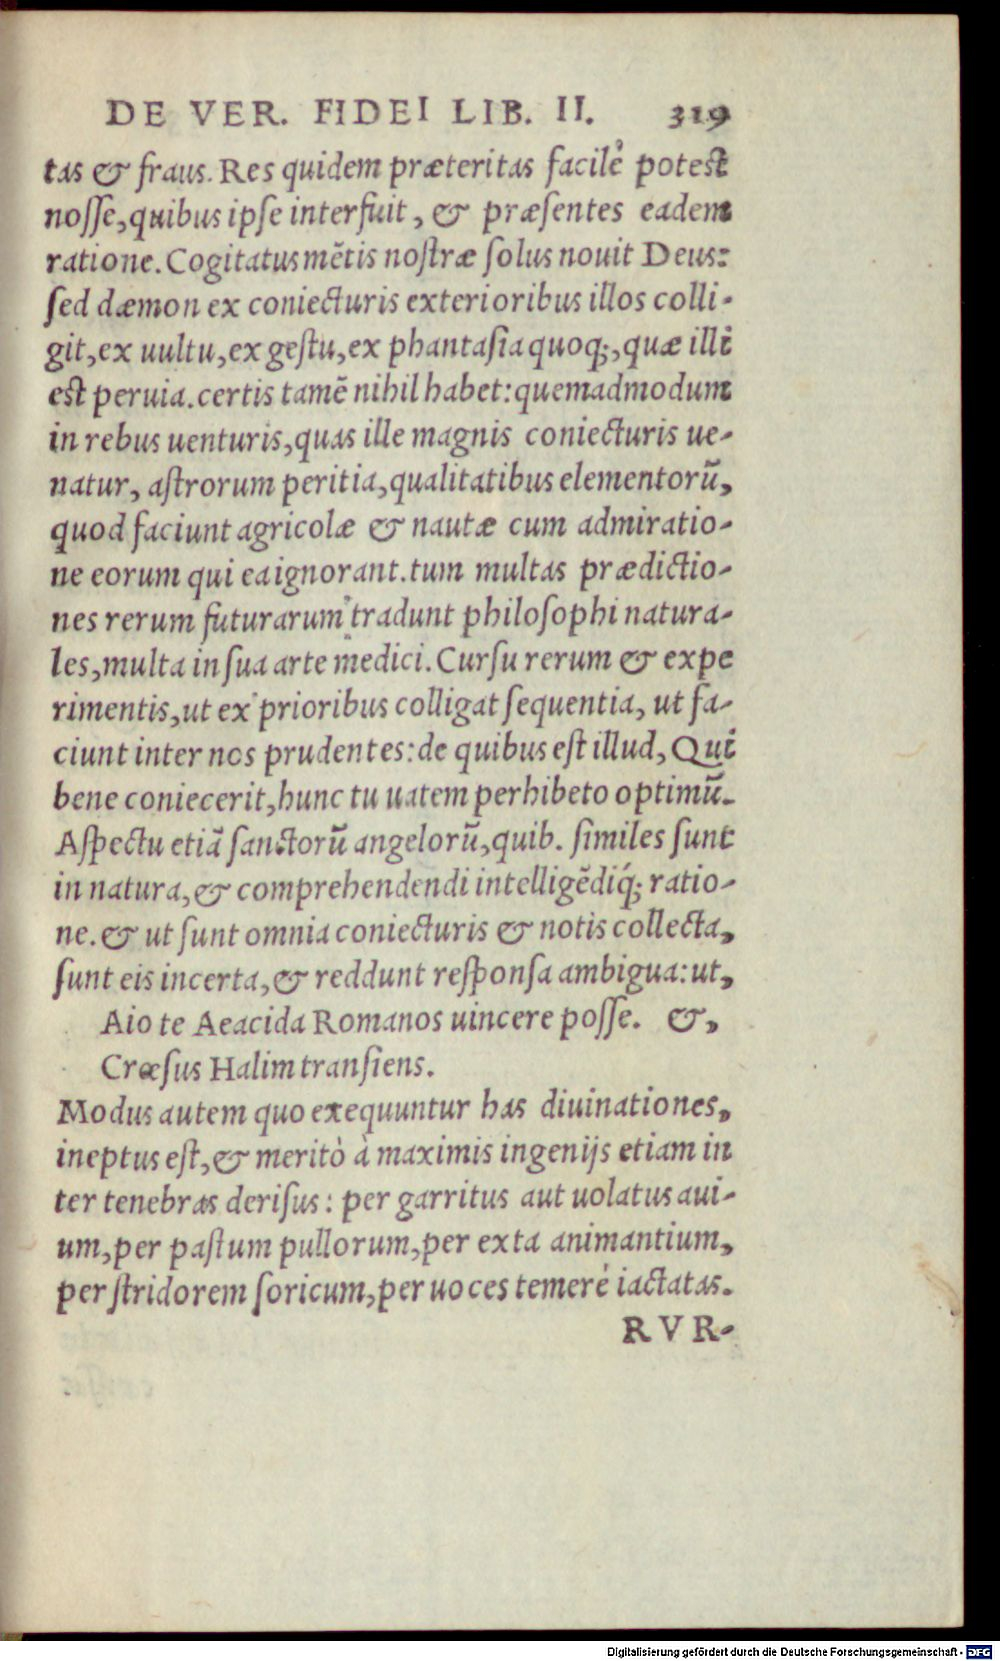 DE VER. FIDEI LIB. II. 319
tas & fraus. Res quidem præteritas facilè potest
nosse, quibus ipse interfuit, & præsentes eadem
ratione. Cogitatus mētis nostræ solus nouit Deus:
sed dæmon ex coniecturis exterioribus illos colli-
git, ex uultu, ex gestu, ex phantasia quoq;, quæ illi
est peruia. certis tamē nihil habet: quemadmodum
in rebus uenturis, quas ille magnis coniecturis ue-
natur, astrorum peritia, qualitatibus elementorū,
quod faciunt agricolæ & nautæ cum admiratio-
ne eorum qui ea ignorant. tum multas prædictio-
nes rerum futurarum tradunt philosophi natura-
les, multa in sua arte medici. Cursu rerum & expe
rimentis, ut ex prioribus colligat sequentia, ut fa-
ciunt inter nos prudentes: de quibus est illud, Qui
bene coniecerit, hunc tu uatem perhibeto optimū.
Aspectu etiā sanctorū angelorū, quib. similes sunt
in natura, & comprehendendi intelligēdiq́; ratio-
ne. & ut sunt omnia coniecturis & notis collecta,
sunt eis incerta, & reddunt responsa ambigua: ut,
Aio te Aeacida Romanos uincere posse. &,
Cræsus Halim transiens.
Modus autem quo exequuntur has diuinationes,
ineptus est, & meritò à maximis ingenijs etiam in
ter tenebras derisus: per garritus aut uolatus aui-
um, per pastum pullorum, per exta animantium,
per stridorem soricum, per uoces temerè iactatas.
RVR-
Digitalisierung gefördert durch die Deutsche Forschungsgemeinschaft - DFG